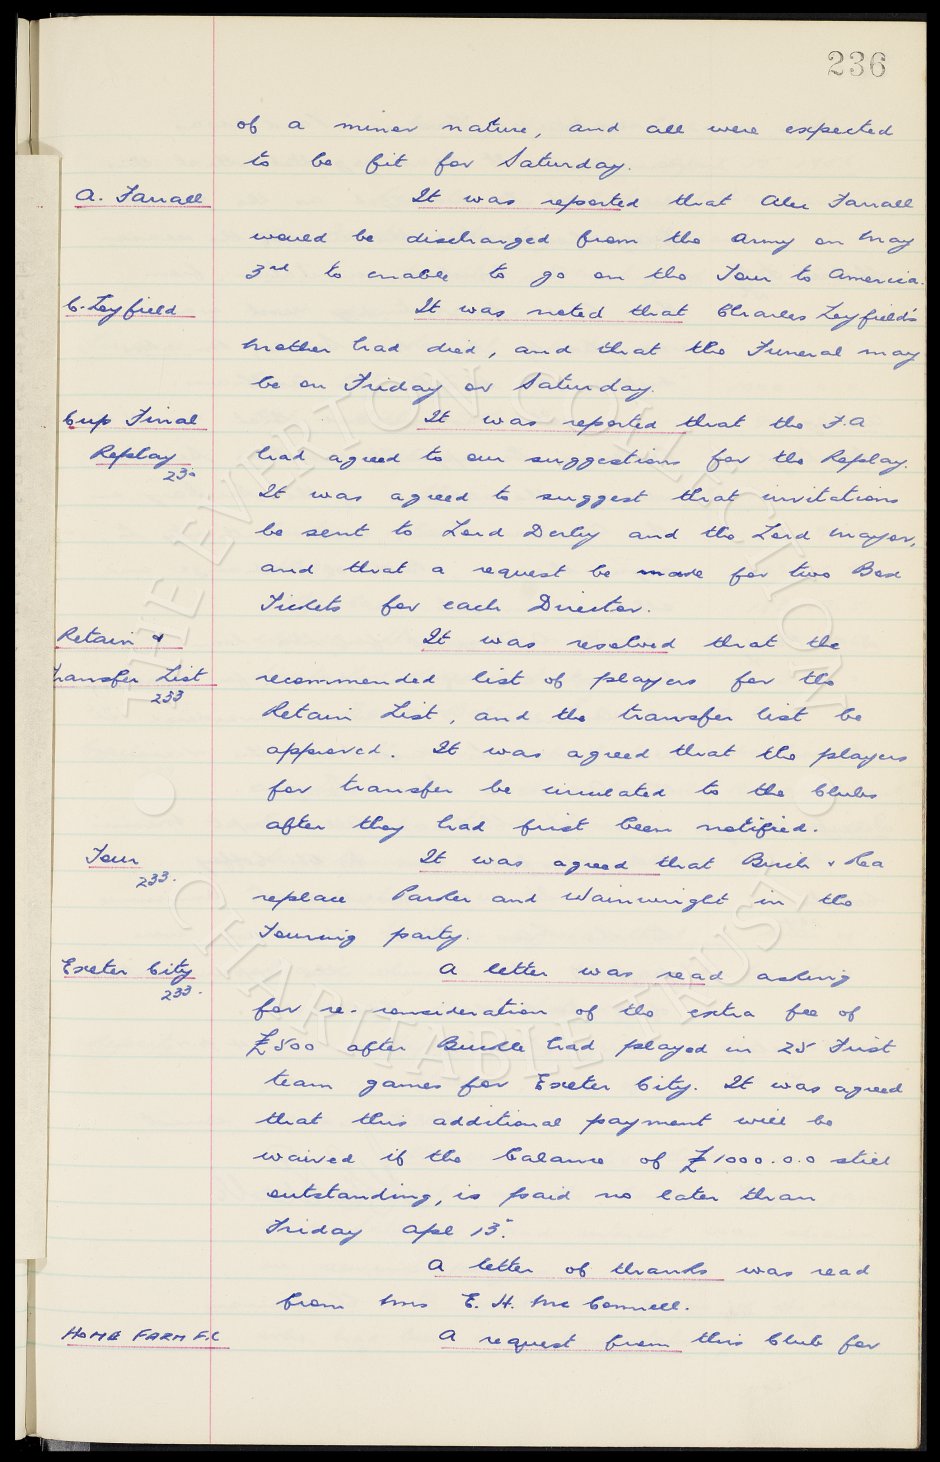 236
of a minor nature, and all were expected
to be fit for Saturday.
A. Farrall It was reported that Alec Farrall
would be discharged from the Army on May
3rd to enable to go on the Tour to America.
C. Leyfield It was noted that Charles Leyfield's
mother had died, and that the Funeral may
be on Friday or Saturday.
Cup Final It was reported that the F.A
Replay had agreed to our suggestions for the Replay.
230
It was agreed to suggest that invitations
be sent to Lord Derby and the Lord Mayor,
and that a request be made for two Box
Tickets for each Director.
Retain & It was resolved that the
Transfer List recommended list of players for the
233
Retain List, and the transfer list be
approved. It was agreed that the players
for transfer be circulated to the Clubs
after they had first been notified.
Tour It was agreed that Birch & Rea
233.
replace Parker and Wainwright in the
Touring party.
Exeter City A letter was read asking
233.
for re-consideration of the extra fee of
£500 after Buckle had played in 25 First
team games for Exeter City. It was agreed
that this additional payment will be
waived if the balance of £1000.0.0 still
outstanding, is paid no later than
Friday Apl 15.
A letter of thanks was read
from Mrs E. H. McConnell.
HOME FARM F.C A request from this Club for
THE EVERTON COLLECTION
CHARITABLE TRUST